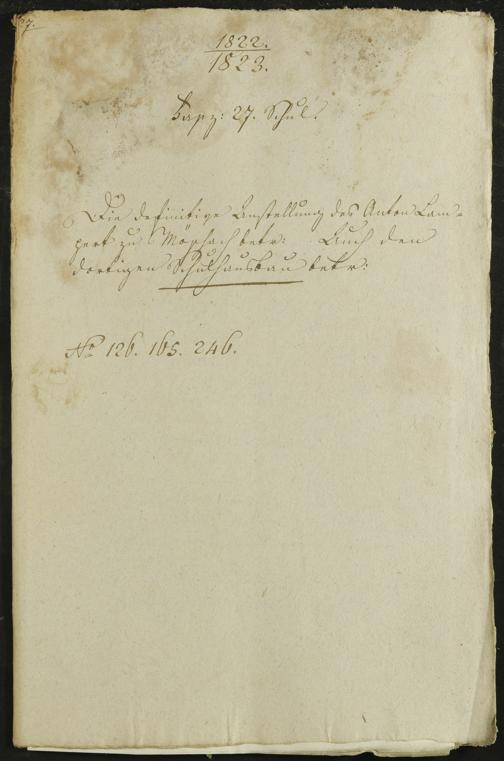 27.
1822.
1823.
Fasz: 27. Schul.
Die definitive Anstellung des Anton Lam-
pert zu betr: Auch den
dortigen Schulhausbau betr:
No 126. 165. 246.